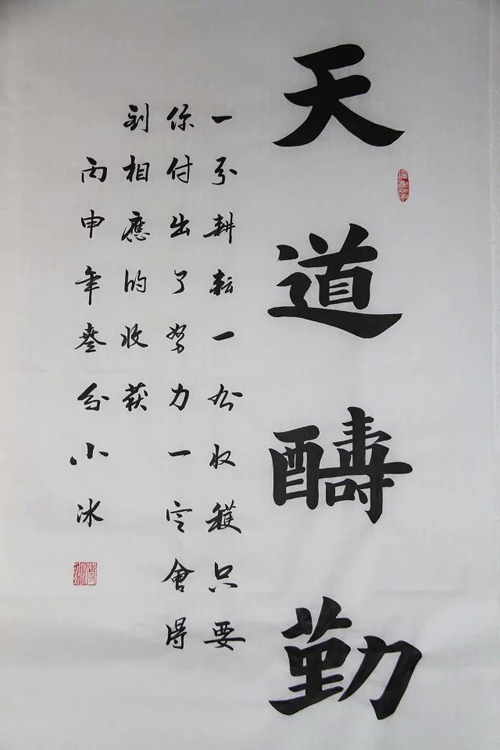 天道醻勤
一分耕耘一分收穫只要
你付出了努力一定會得
到相應的收获
丙申年小冰